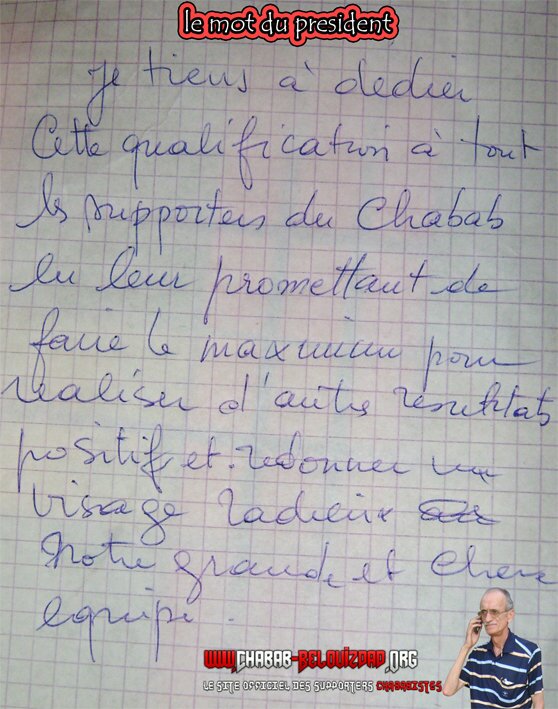 le mot du president
je tiens à dedier
Cette qualification à tout
les supporters du Chabab
en leur promettant de
faire le maximum pour
realiser d'autres resultats
positifs et redonner un
visage radieux
Notre grande et chere
equipe.
WWW.CHABAB-BELOUIZDAD.ORG
LE SITE OFFICIEL DES SUPPORTERS CHABABISTES